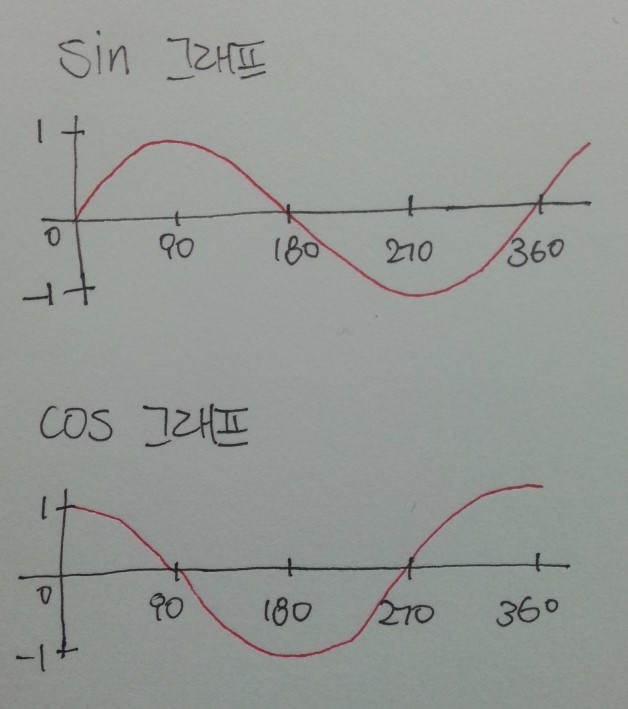 sin 그래프
1
0 90 180 270 360
-1
cos 그래프
1
0 90 180 270 360
-1